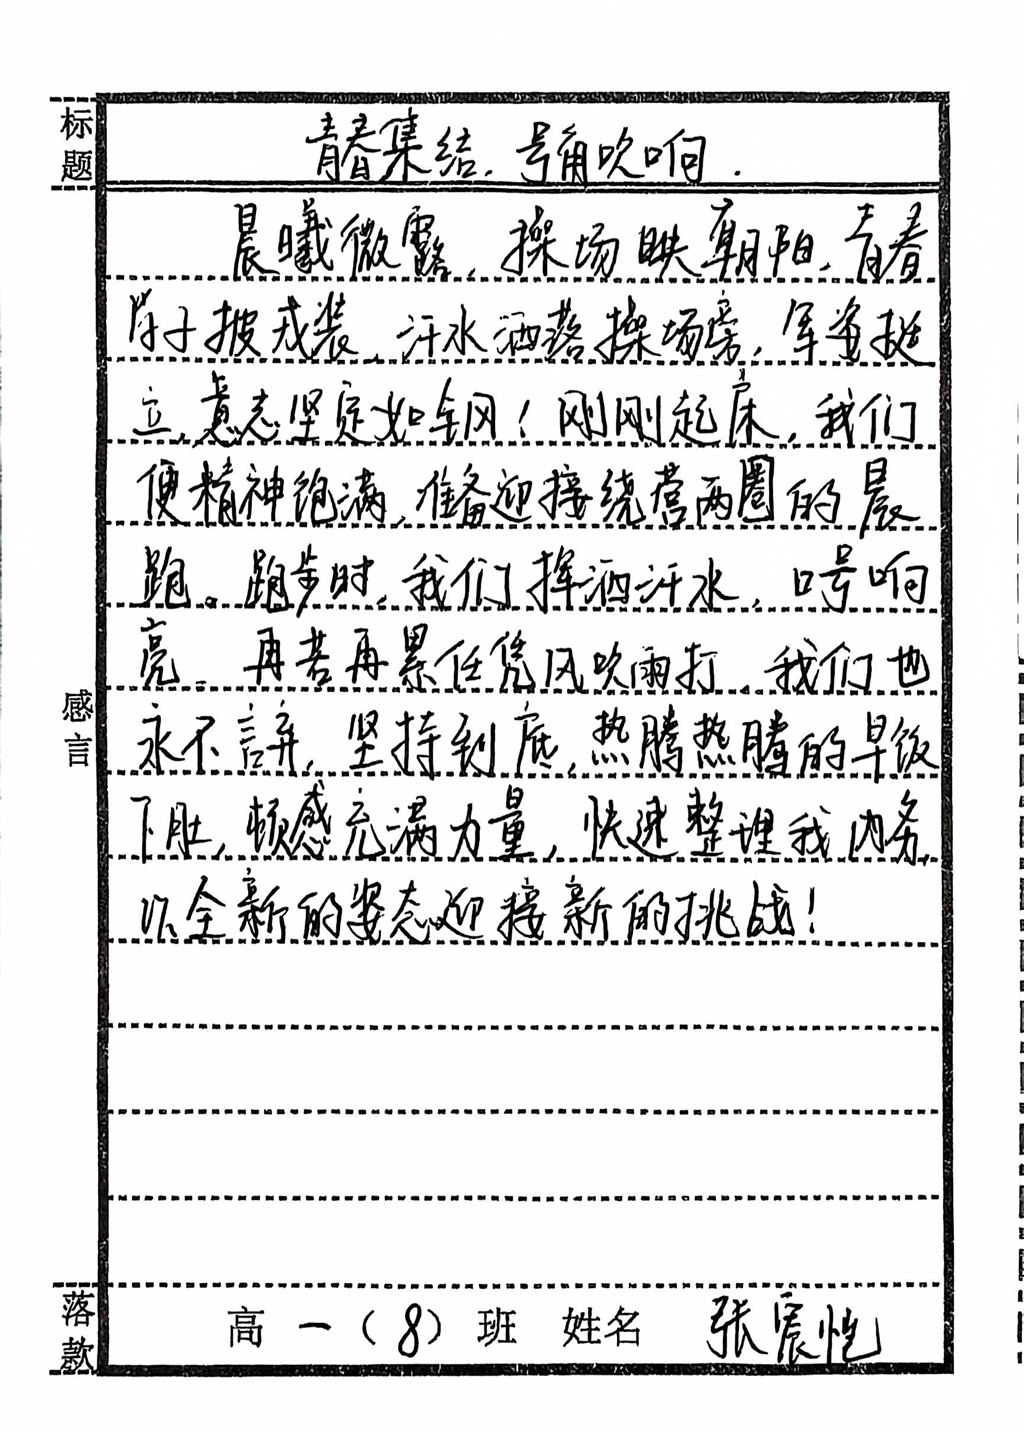 标题
青春集结，号角吹响．
晨曦微露，操场映朝阳，青春
学子披戎装，汗水洒落操场旁，军姿挺
立，意志坚定如钢！刚刚起床，我们
便精神饱满，准备迎接绕营两圈的晨
跑。跑步时，我们挥洒汗水，口号响
亮。再苦再累任凭风吹雨打，我们也
永不言弃，坚持到底，热腾热腾的早饭
下肚，顿感充满力量，快速整理我内务，
以全新的姿态迎接新的挑战！
感言
落款
高一（8）班 姓名 张宸恺